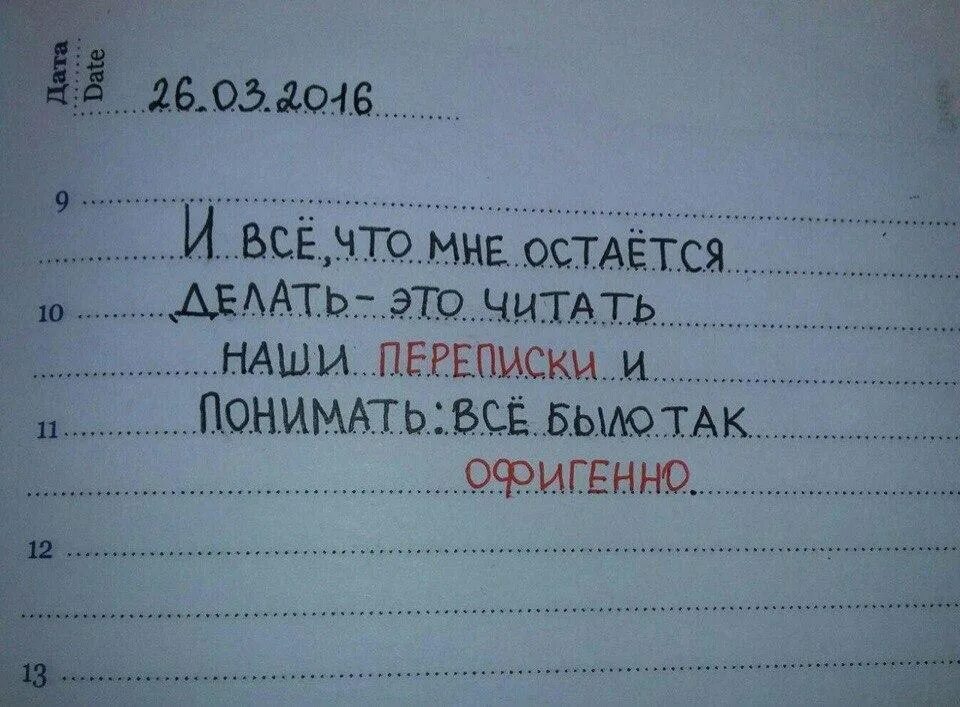 Дата
Date
26.03.2016
9
И ВСЁ, ЧТО МНЕ ОСТАЁТСЯ
10 ДЕЛАТЬ - ЭТО ЧИТАТЬ
НАШИ ПЕРЕПИСКИ И
11 ПОНИМАТЬ: ВСЁ БЫЛО ТАК
ОФИГЕННО.
12
13